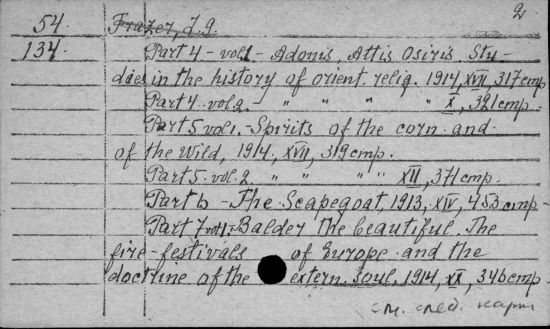 2
54. Frazer, J.G.
134. Part 4 - vol.1 - Adonis, Attis Osiris. Stu-
dies in the history of orient. relig. 1914, XVII, 317 cmp.
Part 4. vol.2. " " " " X, 321 cmp.
Part 5 vol.1. - Spirits of the corn and
of the wild, 1914, XVII, 319 cmp.
Part 5. vol.2. " " " " XII, 371 cmp.
Part 6 - The Scapegoat, 1913, XIV, 453 cmp -
Part 7 vol.1 - Balder the beautiful. The
fire-festivals of Europe and the
doctrine of the extern. soul, 1914, XX, 346 cmp -
см. след. карт